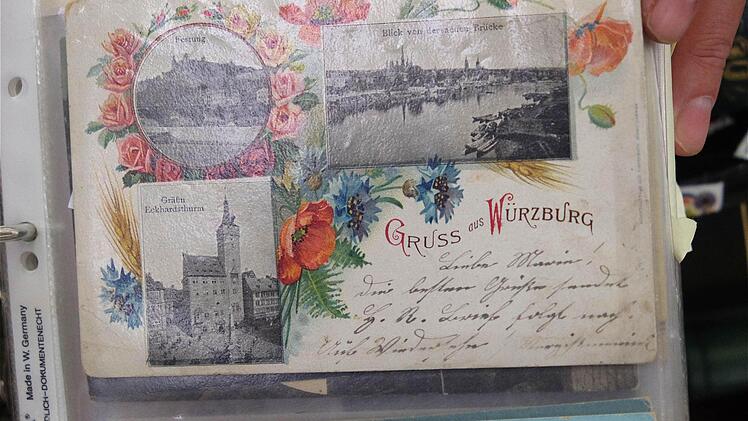 Festung
Blick von der alten Brücke
Gräfin
Eckhardsthurm
GRUSS aus WÜRZBURG
Liebe
die besten Grüße sendet
Brief folgt nach.
Auf Wiedersehn!
Made in W. Germany
DLICH-DOKUMENTENECHT